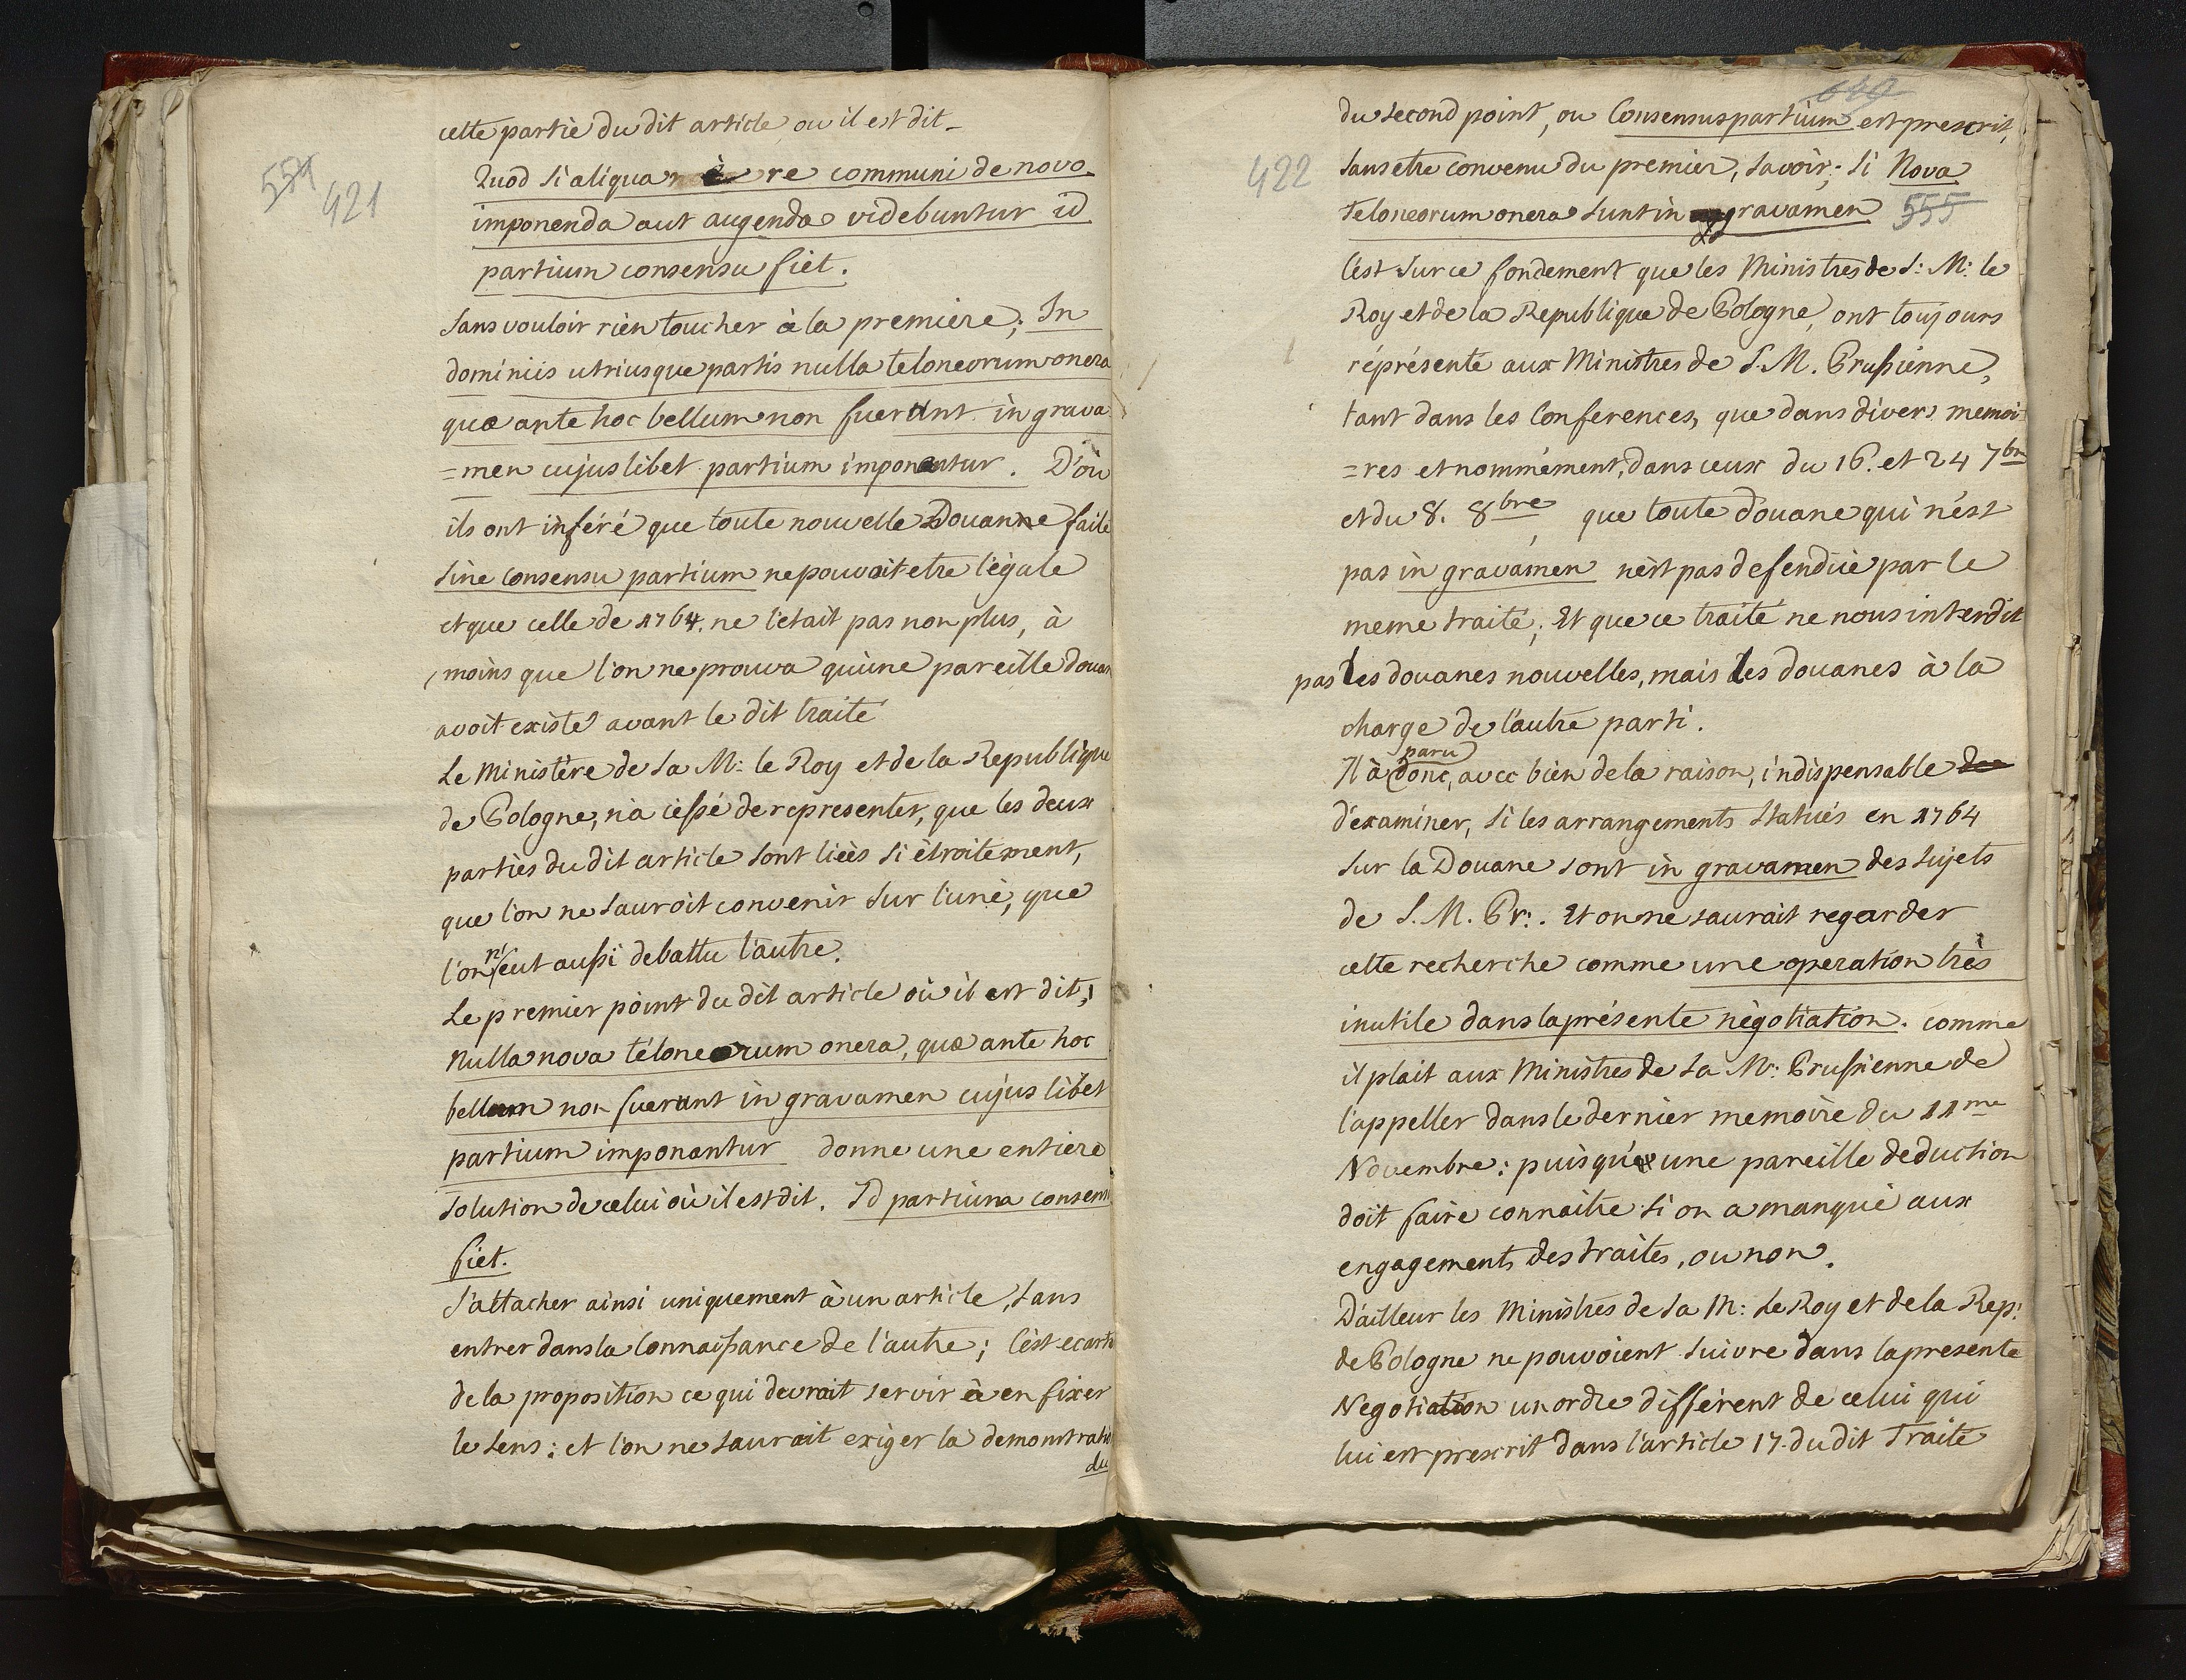 554
421
cette partie du dit article ou il est dit_
Quod si aliqua è re communi de novo
imponenda aut augenda videbuntur id
partium consensu fiet.
sans vouloir rien toucher à la première; In
dominiis utriusque partis nulla teloneorum onera
quæ ante hoc bellum non fuerunt in grava
=men cujuslibet partium imponantur. D'où
ils ont inféré que toute nouvelle Douanne faite
sine consensu partium ne pouvait etre légale
et que celle de 1764. ne l'était pas non plus, à
moins que l'on ne prouva qu'une pareille douan
avoit existé avant le dit traité
Le Ministère de Sa M: le Roy et de la Republique
de Pologne, n'a cessé de representer, que les deux
parties du dit article sont liées si étroitement,
que l'on ne sauroit convenir sur l'une, que
l'on n'eut aussi debattu l'autre.
Le premier point du dit article où il est dit,
Nulla nova téloneorum onera, quæ ante hoc
bellum non fuerunt in gravamen cujus libet
partium imponantur donne une entiere
solution de celui où il est dit. Id partium consens
fiet.
S'attacher ainsi uniquement à un article, sans
entrer dans la Connaissance de l'autre; C'est ecarte
de la proposition ce qui devrait servir à en fixer
le sens: et l'on ne saurait exiger la demonstratio
du
du second point, ou Consensus partium est prescrit,
422
sans etre convenu du premier, savoir; si Nova
Teloneorum onera sunt in gravamen 555
C'est sur ce fondement que les Ministres de S: M: le
Roy et de la Republique de Pologne, ont toujours
réprésenté aux Ministres de S. M. Prussienne,
tant dans les Conferences, que dans divers memoi
=res et nommément, dans ceux du 16. et 24 7bre
et du 8. 8bre, que toute douane qui n'est
pas in gravamen n'est pas defendüe par le
meme traité; Et que ce traité ne nous interdit
pas les douanes nouvelles, mais les douanes à la
charge de l'autre parti.
Il à paru donc, avec bien de la raison, indispensable de
d'examiner, si les arrangements statués en 1764
sur la Douane sont in gravamen des sujets
de S. M. Pr:. Et on ne saurait regarder
cette recherche comme une operation très
inutile dans la présente négotiation. comme
il plait aux Ministres de Sa M: Prussienne de
l'appeller dans le dernier memoire du 11me
Novembre: puisqu'une pareille deduction
doit faire connaitre si on a manqué aux
engagements des traités, ou non.
D'ailleur les Ministres de Sa M: Le Roy et de la Rep:
de Pologne ne pouvoient suivre dans la presente
Negotiation un ordre différent de celui qui
lui est prescrit dans l'article 17. du dit Traité